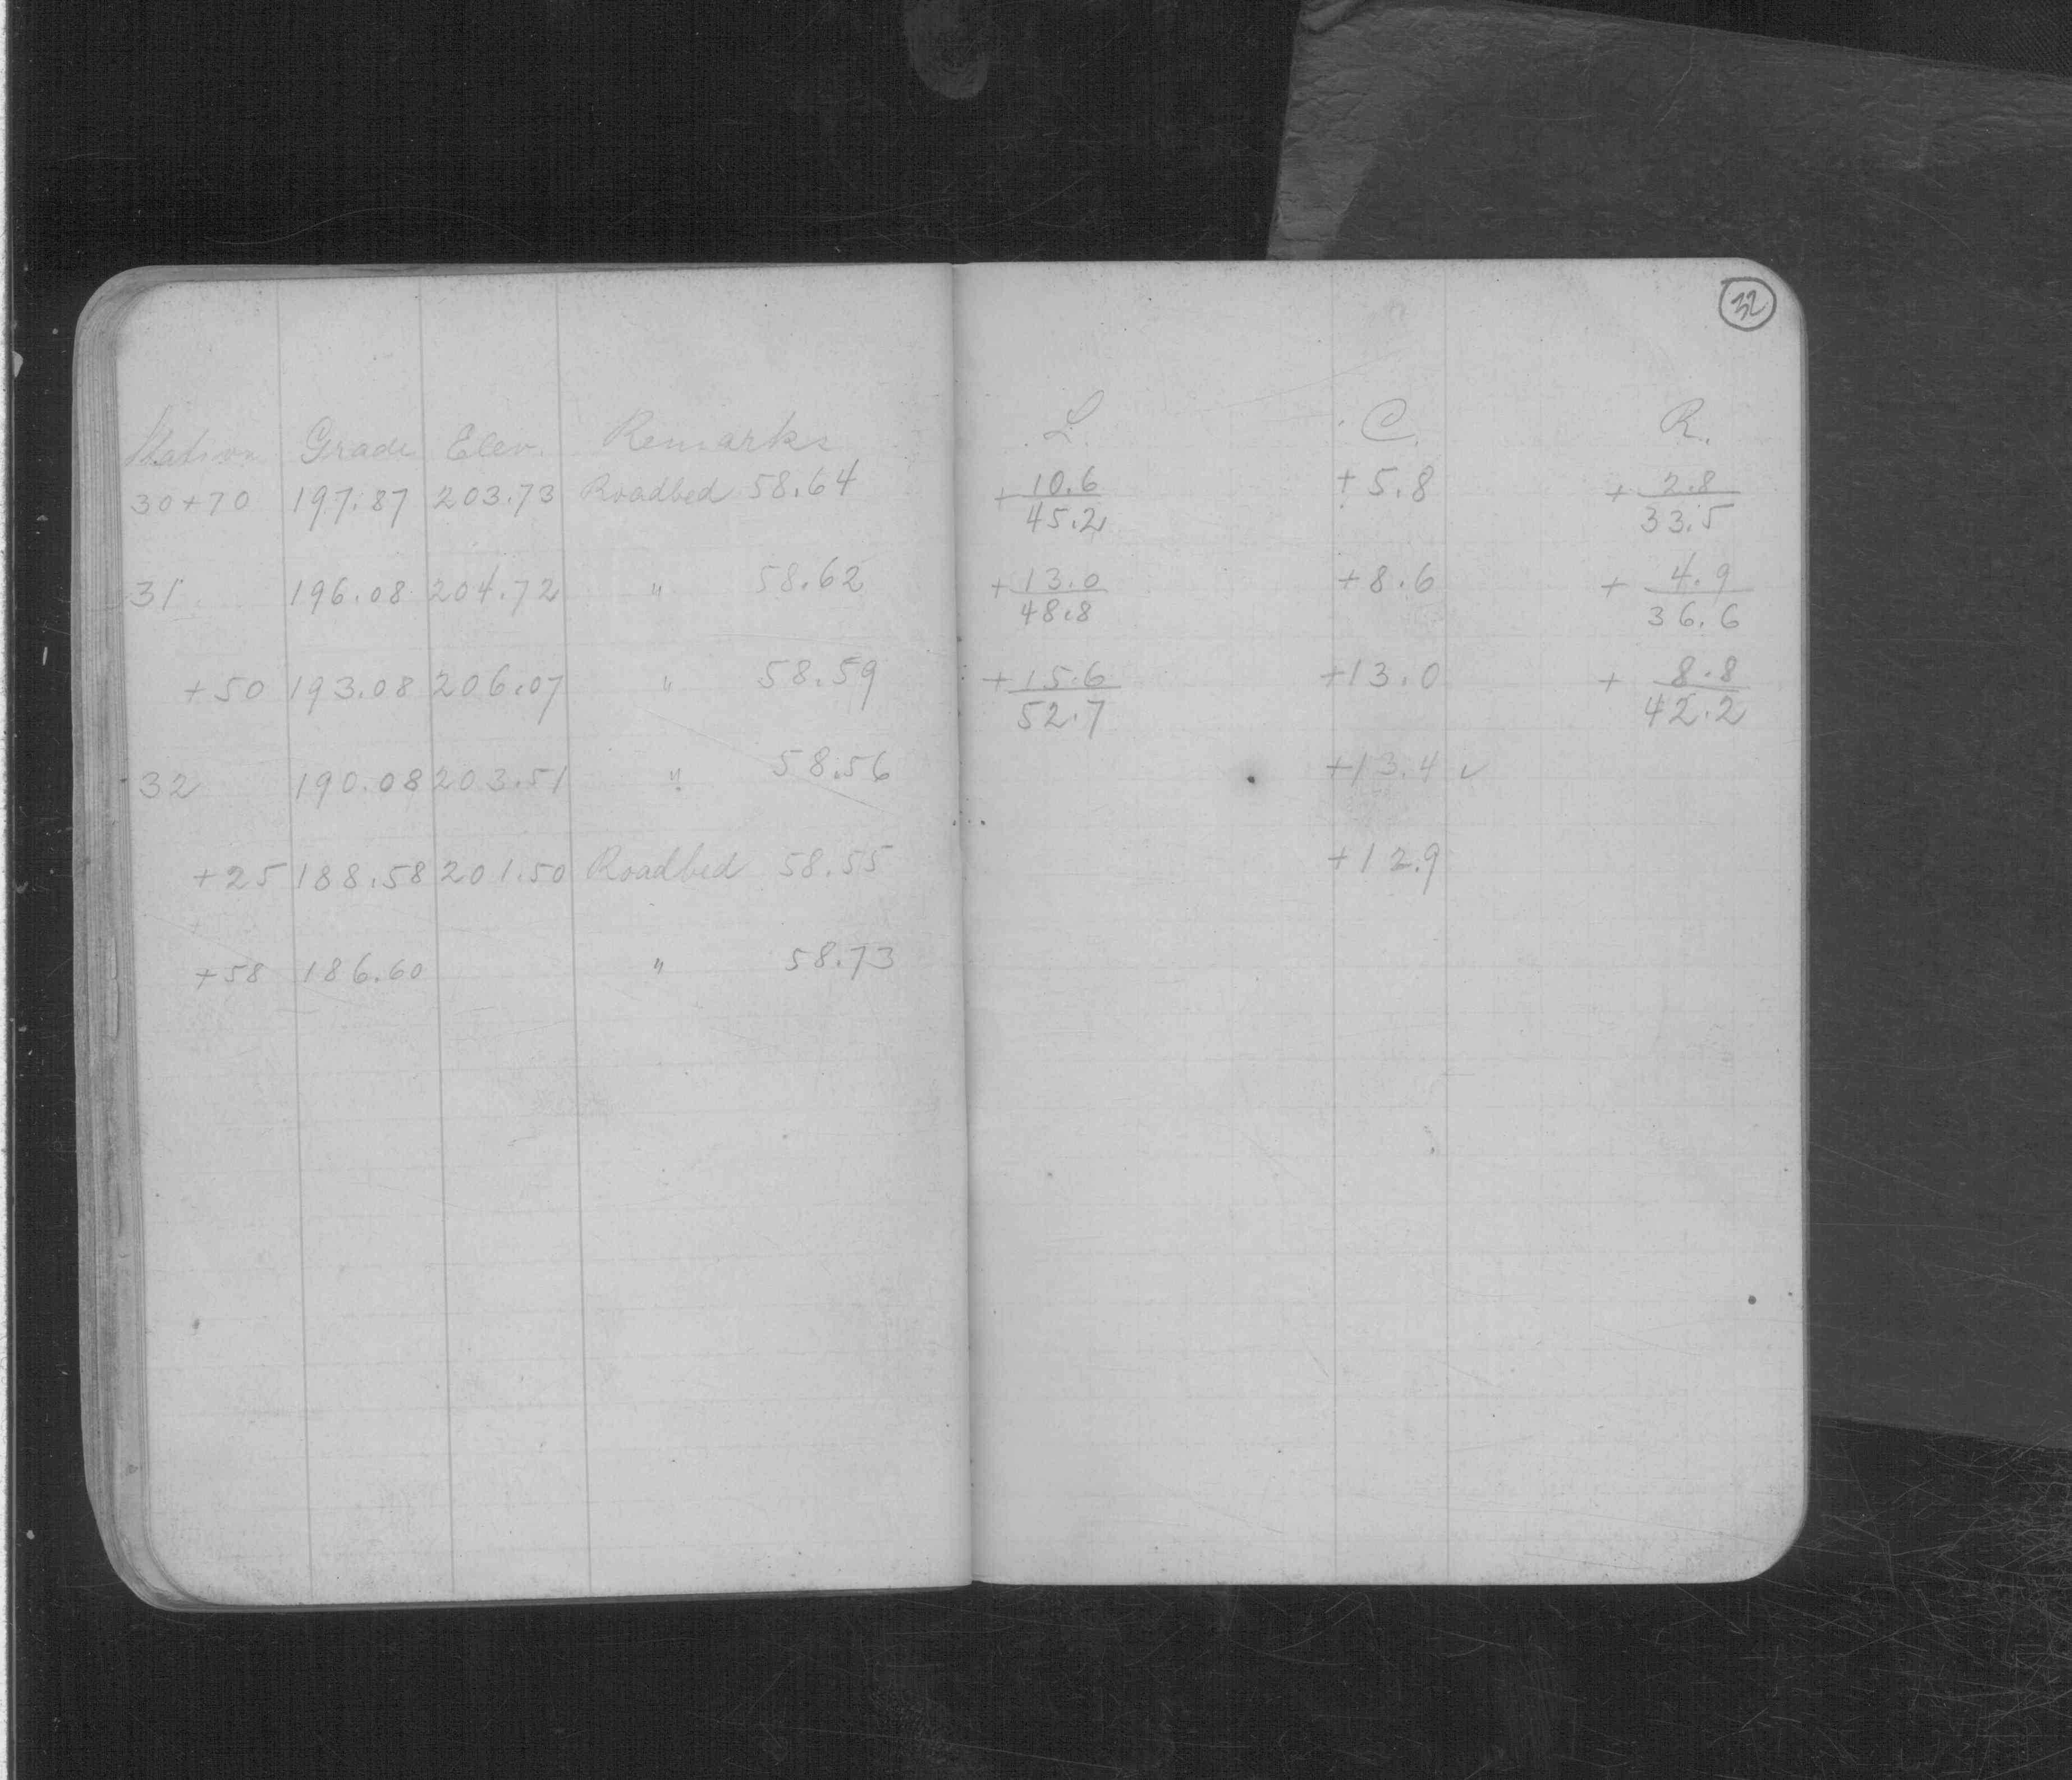 32
Station Grade Elev. Remarks L. C. R.
30+70 197.87 203.73 Roadbed 58.64 + 10.6/45.2 +5.8 + 2.8/33.5
31 196.08 204.72 " 58.62 + 13.0/48.8 +8.6 + 4.9/36.6
+50 193.08 206.07 " 58.59 + 15.6/52.7 +13.0 + 8.8/42.2
32 190.08 203.51 " 58.56 +13.4 ✓
+25 188.58 201.50 Roadbed 58.55 +12.9
+58 186.60 " 58.73